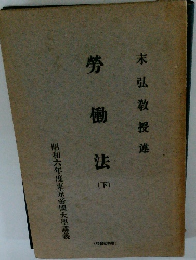 末弘教授述
勞働法
(下)
昭和六年度東京帝國大學講義